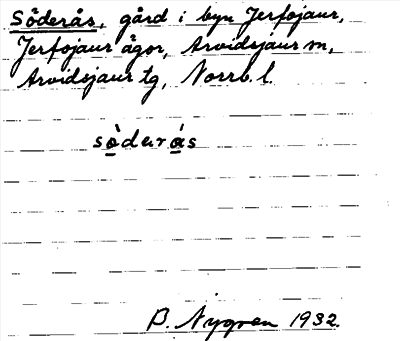 Söderås, gård i byn Jerfojaur,
Jerfojaur ägor, Arvidsjaur sn,
Arvidsjaur tg, Norrb. l.
sò̲derá̲s
B. Nygren 1932.